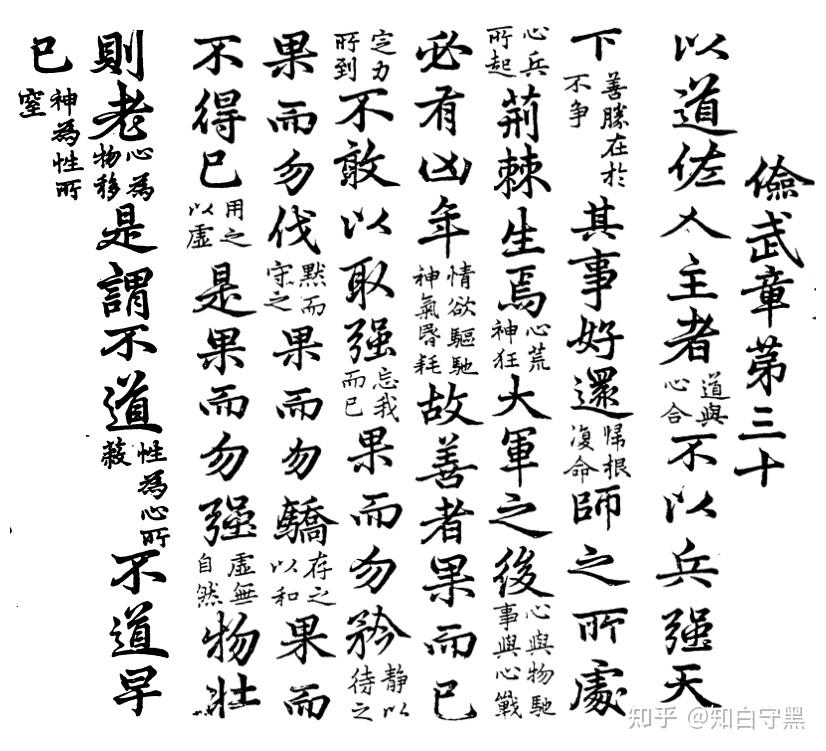 儉武章第三十
以道佐人主者道與心合不以兵强天
下善勝在於不争其事好還歸根復命師之所處
心兵所起荊棘生焉心荒神狂大軍之後心與物馳事與心戰
必有凶年情欲驅馳神氣昬耗故善者果而已
定力所到不敢以取强忘我而已果而勿矜静以待之
果而勿伐默而守之果而勿驕存之以和果而
不得已用之以虛是果而勿强虛無自然物壯
則老心為物移是謂不道性為心所蔽不道早
已神為性所窒
知乎 @知白守黑